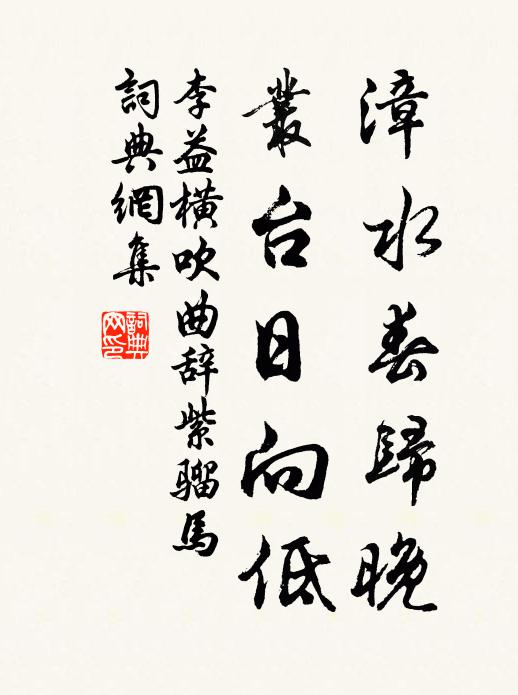 漳水春歸晚
叢台日向低
李益橫吹曲辞紫騮馬
詞典網集
詞典
网印